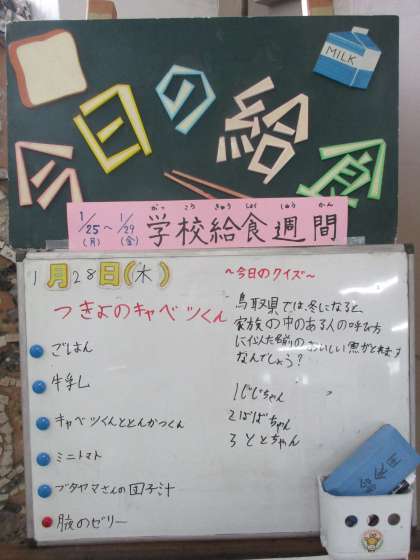 今日の給食
MILK
1/25(月)~1/29(金) 学校給食週間
がっこうきゅうしょくしゅうかん
1月28日(木)
つきよのキャベツくん
ごはん
牛乳
キャベツくんととんかつくん
ミニトマト
ブタヤマさんの団子汁
腹のゼリー
~今日のクイズ~
鳥取県では、冬になると、
家族の中のある人の呼び方
に似た名前のおいしい魚がとれます
なんでしょう?
1 じじちゃん
2 ばばちゃん
3 ととちゃん